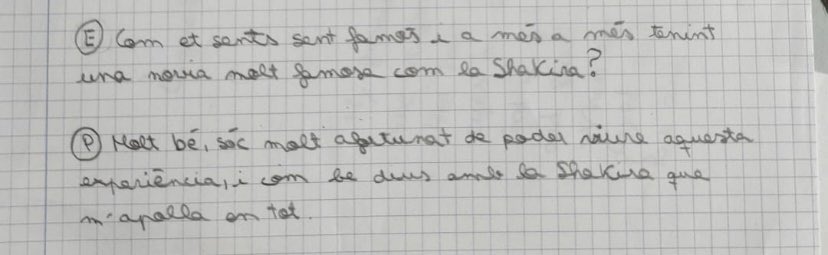 (E) Com et sents sent famós i a més a més tenint
una novia molt famosa com la Shakira?
(P) Molt bé, sóc molt afortunat de poder viure aquesta
experiència, i com be dius amb la Shakira que
m'apolla en tot.